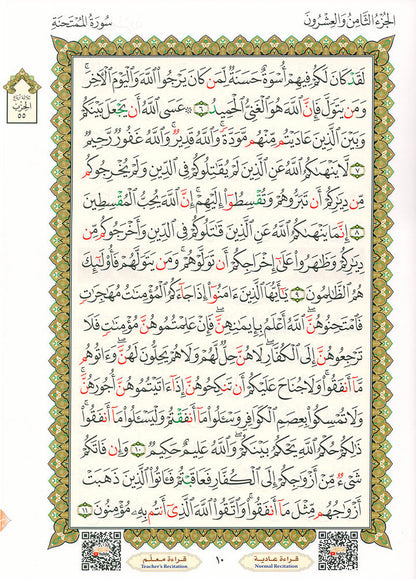 الجُزءُ الثَّامِنُ وَالعِشْرُونَ
سُورَةُ المُمتَحنَةِ
لَقَدْ كَانَ لَكُمْ فِيهِمْ أُسْوَةٌ حَسَنَةٌ لِّمَن كَانَ يَرْجُوا۟ ٱللَّهَ وَٱلْيَوْمَ ٱلْـَٔاخِرَ ۚ
وَمَن يَتَوَلَّ فَإِنَّ ٱللَّهَ هُوَ ٱلْغَنِىُّ ٱلْحَمِيدُ ٦ ۞ عَسَى ٱللَّهُ أَن يَجْعَلَ بَيْنَكُمْ
وَبَيْنَ ٱلَّذِينَ عَادَيْتُم مِّنْهُم مَّوَدَّةً ۚ وَٱللَّهُ قَدِيرٌ ۚ وَٱللَّهُ غَفُورٌ رَّحِيمٌ
٧ لَّا يَنْهَىٰكُمُ ٱللَّهُ عَنِ ٱلَّذِينَ لَمْ يُقَـٰتِلُوكُمْ فِى ٱلدِّينِ وَلَمْ يُخْرِجُوكُم
مِّن دِيَـٰرِكُمْ أَن تَبَرُّوهُمْ وَتُقْسِطُوٓا۟ إِلَيْهِمْ ۚ إِنَّ ٱللَّهَ يُحِبُّ ٱلْمُقْسِطِينَ
٨ إِنَّمَا يَنْهَىٰكُمُ ٱللَّهُ عَنِ ٱلَّذِينَ قَـٰتَلُوكُمْ فِى ٱلدِّينِ وَأَخْرَجُوكُم مِّن
دِيَـٰرِكُمْ وَظَـٰهَرُوا۟ عَلَىٰٓ إِخْرَاجِكُمْ أَن تَوَلَّوْهُمْ ۚ وَمَن يَتَوَلَّهُمْ فَأُو۟لَـٰٓئِكَ
هُمُ ٱلظَّـٰلِمُونَ ٩ يَـٰٓأَيُّهَا ٱلَّذِينَ ءَامَنُوٓا۟ إِذَا جَآءَكُمُ ٱلْمُؤْمِنَـٰتُ مُهَـٰجِرَٰتٍ
فَٱمْتَحِنُوهُنَّ ۖ ٱللَّهُ أَعْلَمُ بِإِيمَـٰنِهِنَّ ۖ فَإِنْ عَلِمْتُمُوهُنَّ مُؤْمِنَـٰتٍ فَلَا
تَرْجِعُوهُنَّ إِلَى ٱلْكُفَّارِ ۖ لَا هُنَّ حِلٌّ لَّهُمْ وَلَا هُمْ يَحِلُّونَ لَهُنَّ ۖ وَءَاتُوهُم
مَّآ أَنفَقُوا۟ ۚ وَلَا جُنَاحَ عَلَيْكُمْ أَن تَنكِحُوهُنَّ إِذَآ ءَاتَيْتُمُوهُنَّ أُجُورَهُنَّ ۚ
وَلَا تُمْسِكُوا۟ بِعِصَمِ ٱلْكَوَافِرِ وَسْـَٔلُوا۟ مَآ أَنفَقْتُمْ وَلْيَسْـَٔلُوا۟ مَآ أَنفَقُوا۟ ۚ
ذَٰلِكُمْ حُكْمُ ٱللَّهِ ۖ يَحْكُمُ بَيْنَكُمْ ۚ وَٱللَّهُ عَلِيمٌ حَكِيمٌ ١٠ وَإِن فَاتَكُمْ
شَىْءٌ مِّنْ أَزْوَٰجِكُمْ إِلَى ٱلْكُفَّارِ فَعَاقَبْتُمْ فَـَٔاتُوا۟ ٱلَّذِينَ ذَهَبَتْ
أَزْوَٰجُهُم مِّثْلَ مَآ أَنفَقُوا۟ ۚ وَٱتَّقُوا۟ ٱللَّهَ ٱلَّذِىٓ أَنتُم بِهِۦ مُؤْمِنُونَ ١١
الحزب
٥٥
قراءة عادية
Normal Recitation
١٠
قراءة معلم
Teacher's Recitation